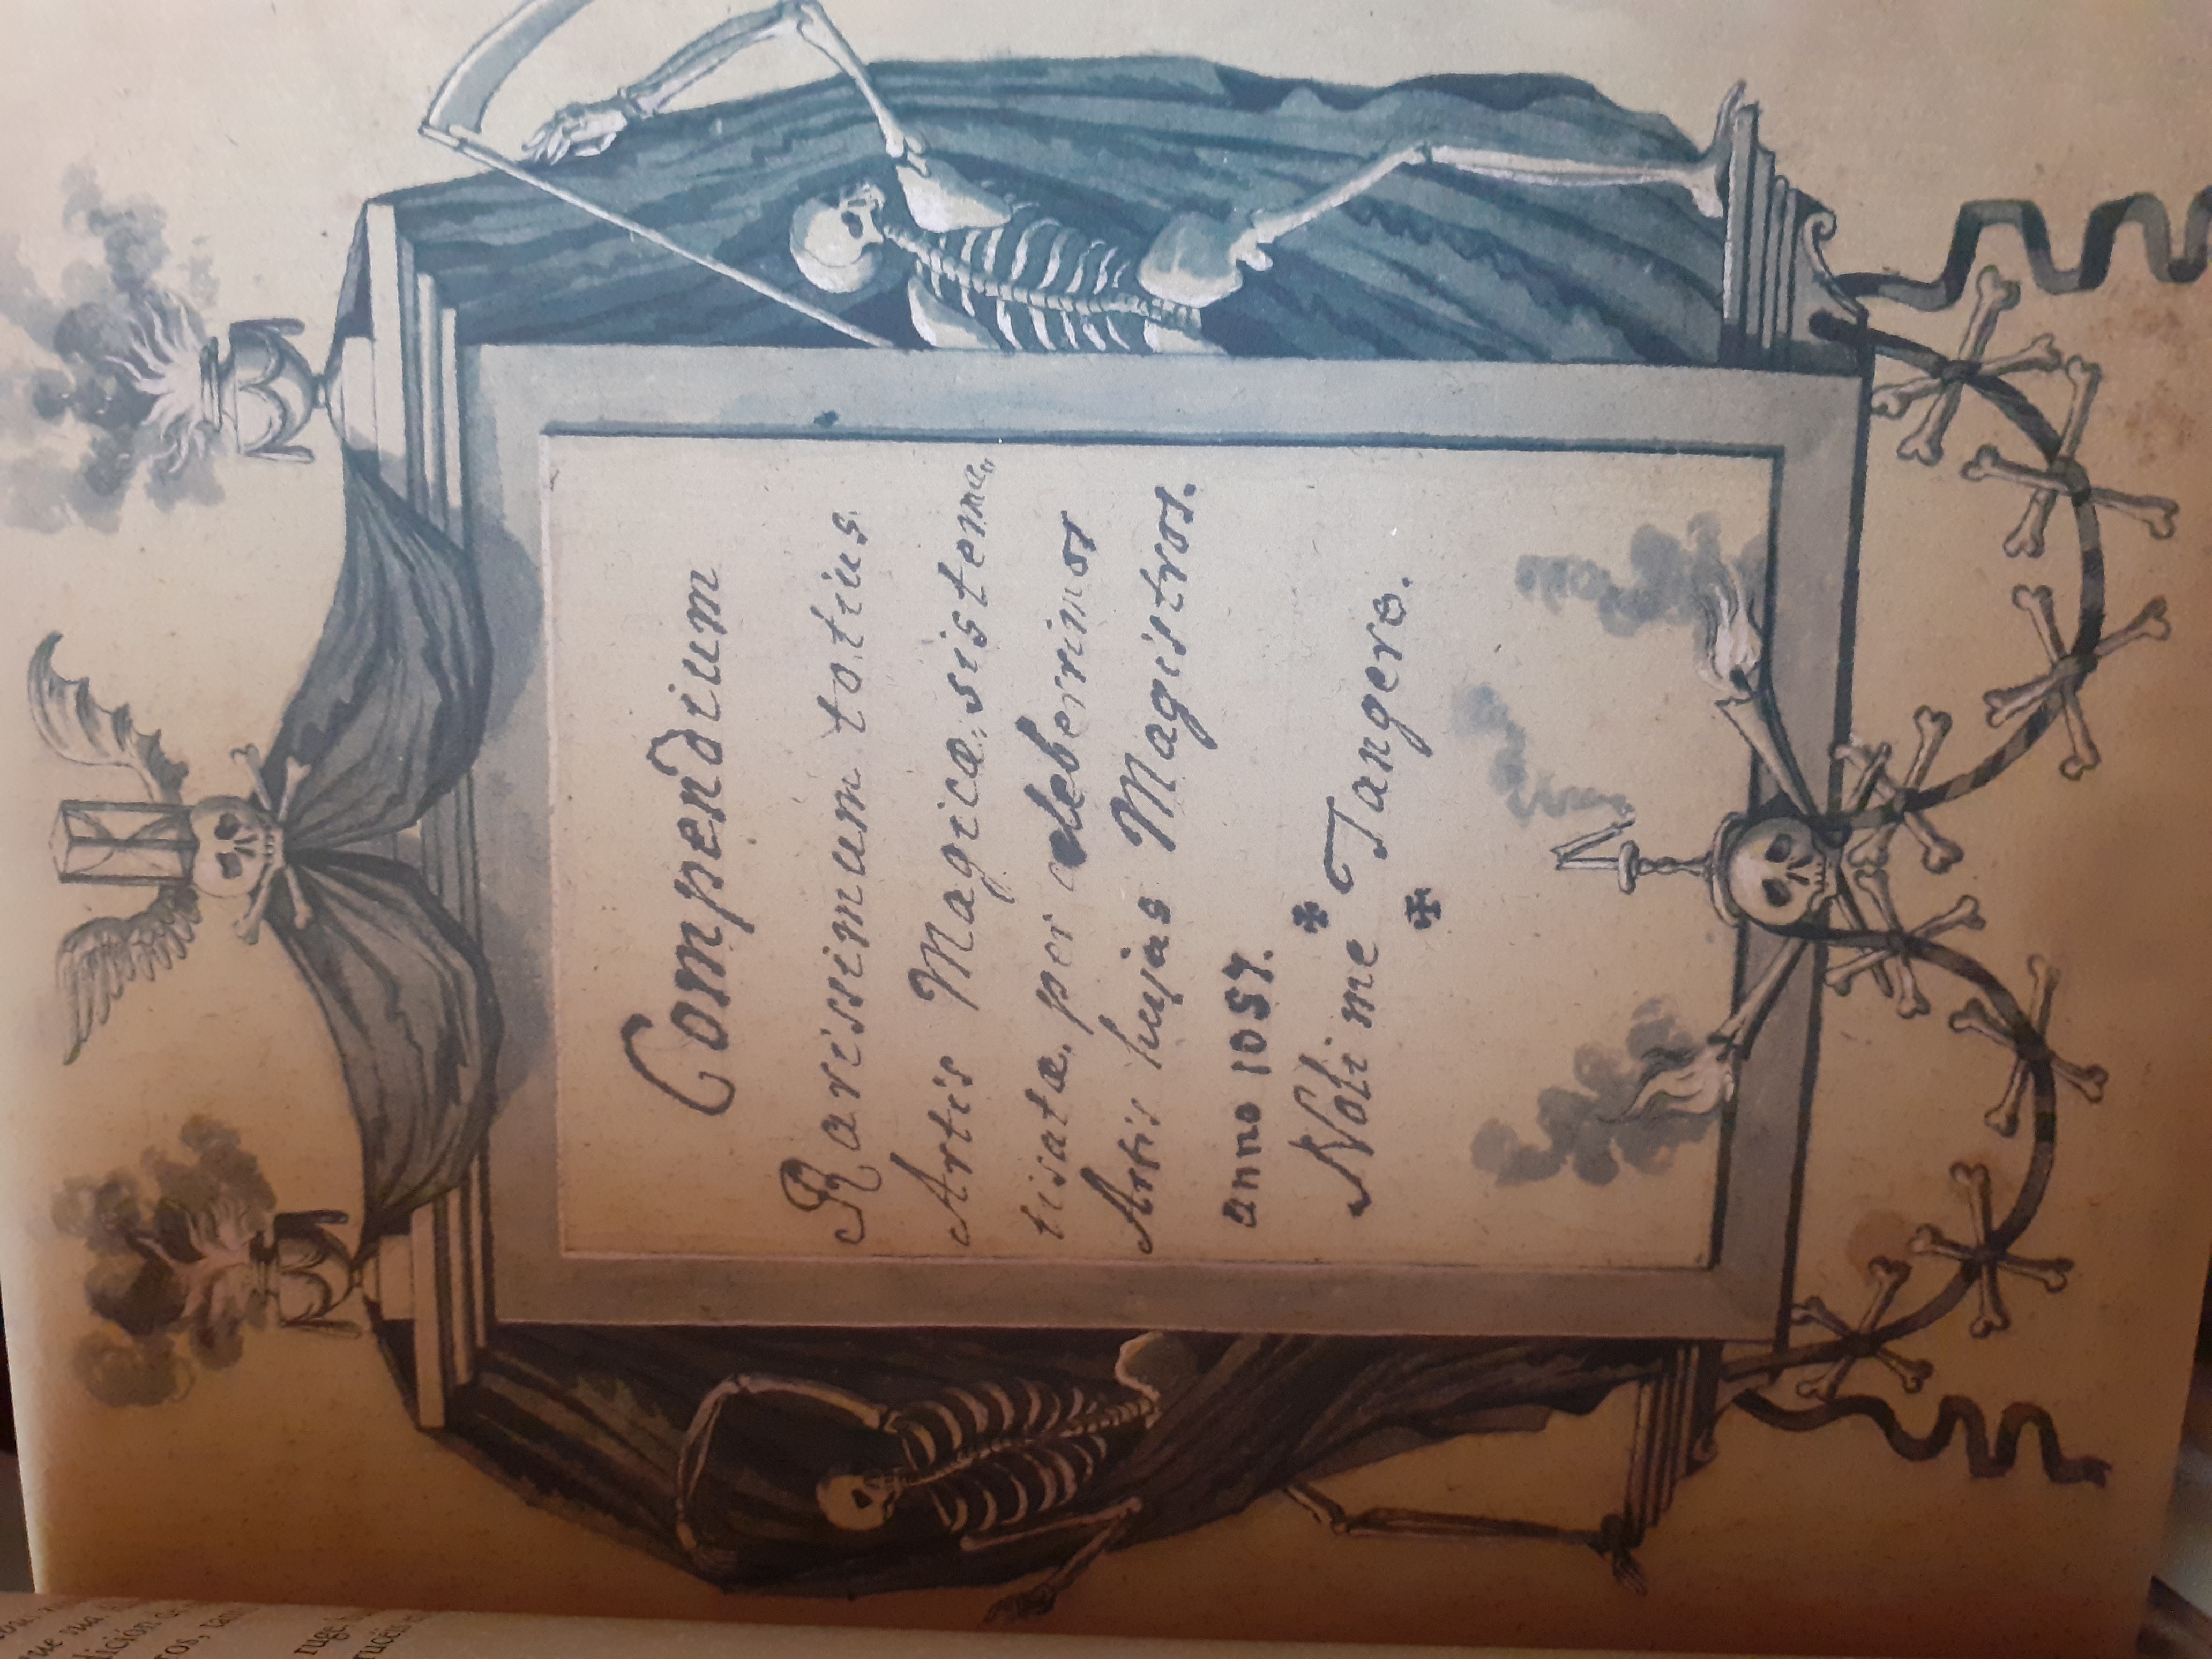 Compendium
Rarissimum totius
Artis Magicæ sistema„
tisatæ per celeberrimos
Artis hujas Magistros.
anno 1057.
Noli me Tangere.
dición de